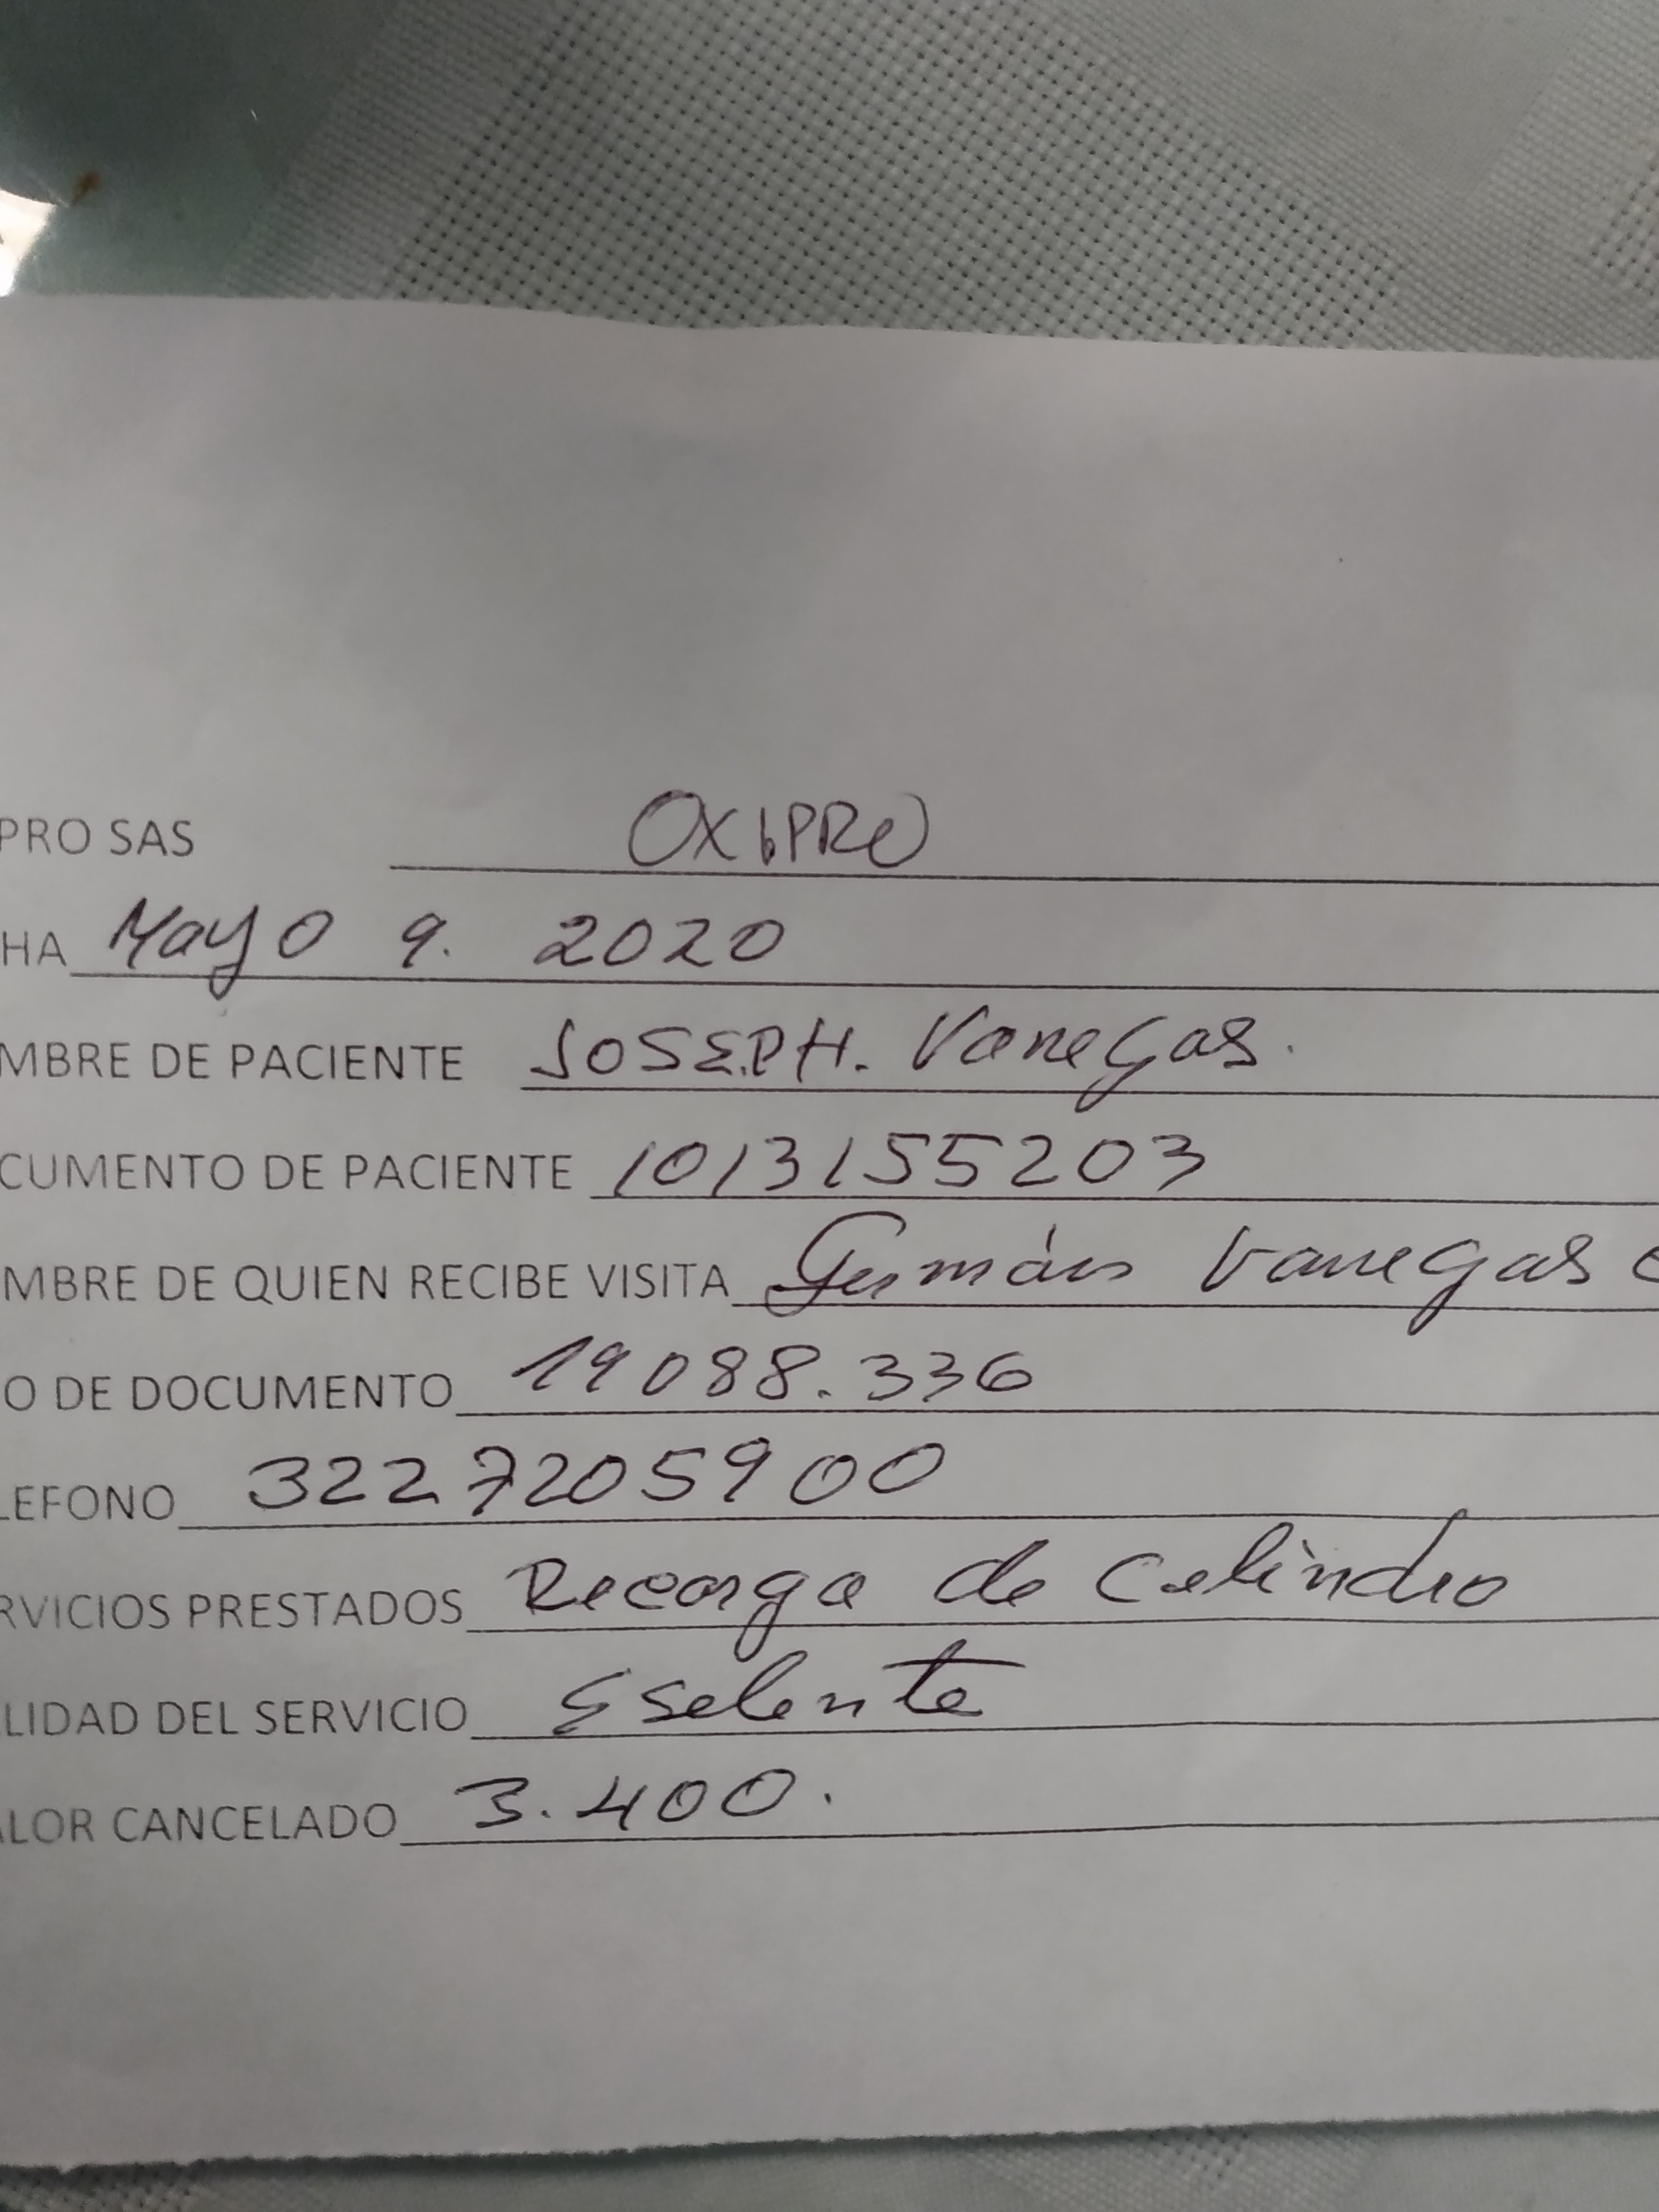 PRO SAS OXIPRO
HA Mayo 9. 2020
MBRE DE PACIENTE JOSEPH. Vanegas.
CUMENTO DE PACIENTE 1013155203
MBRE DE QUIEN RECIBE VISITA Germán Vanegas
O DE DOCUMENTO 19088.336
LEFONO 3227205900
RVICIOS PRESTADOS Recarga de Celindro
LIDAD DEL SERVICIO Eselente
ALOR CANCELADO 3.400.